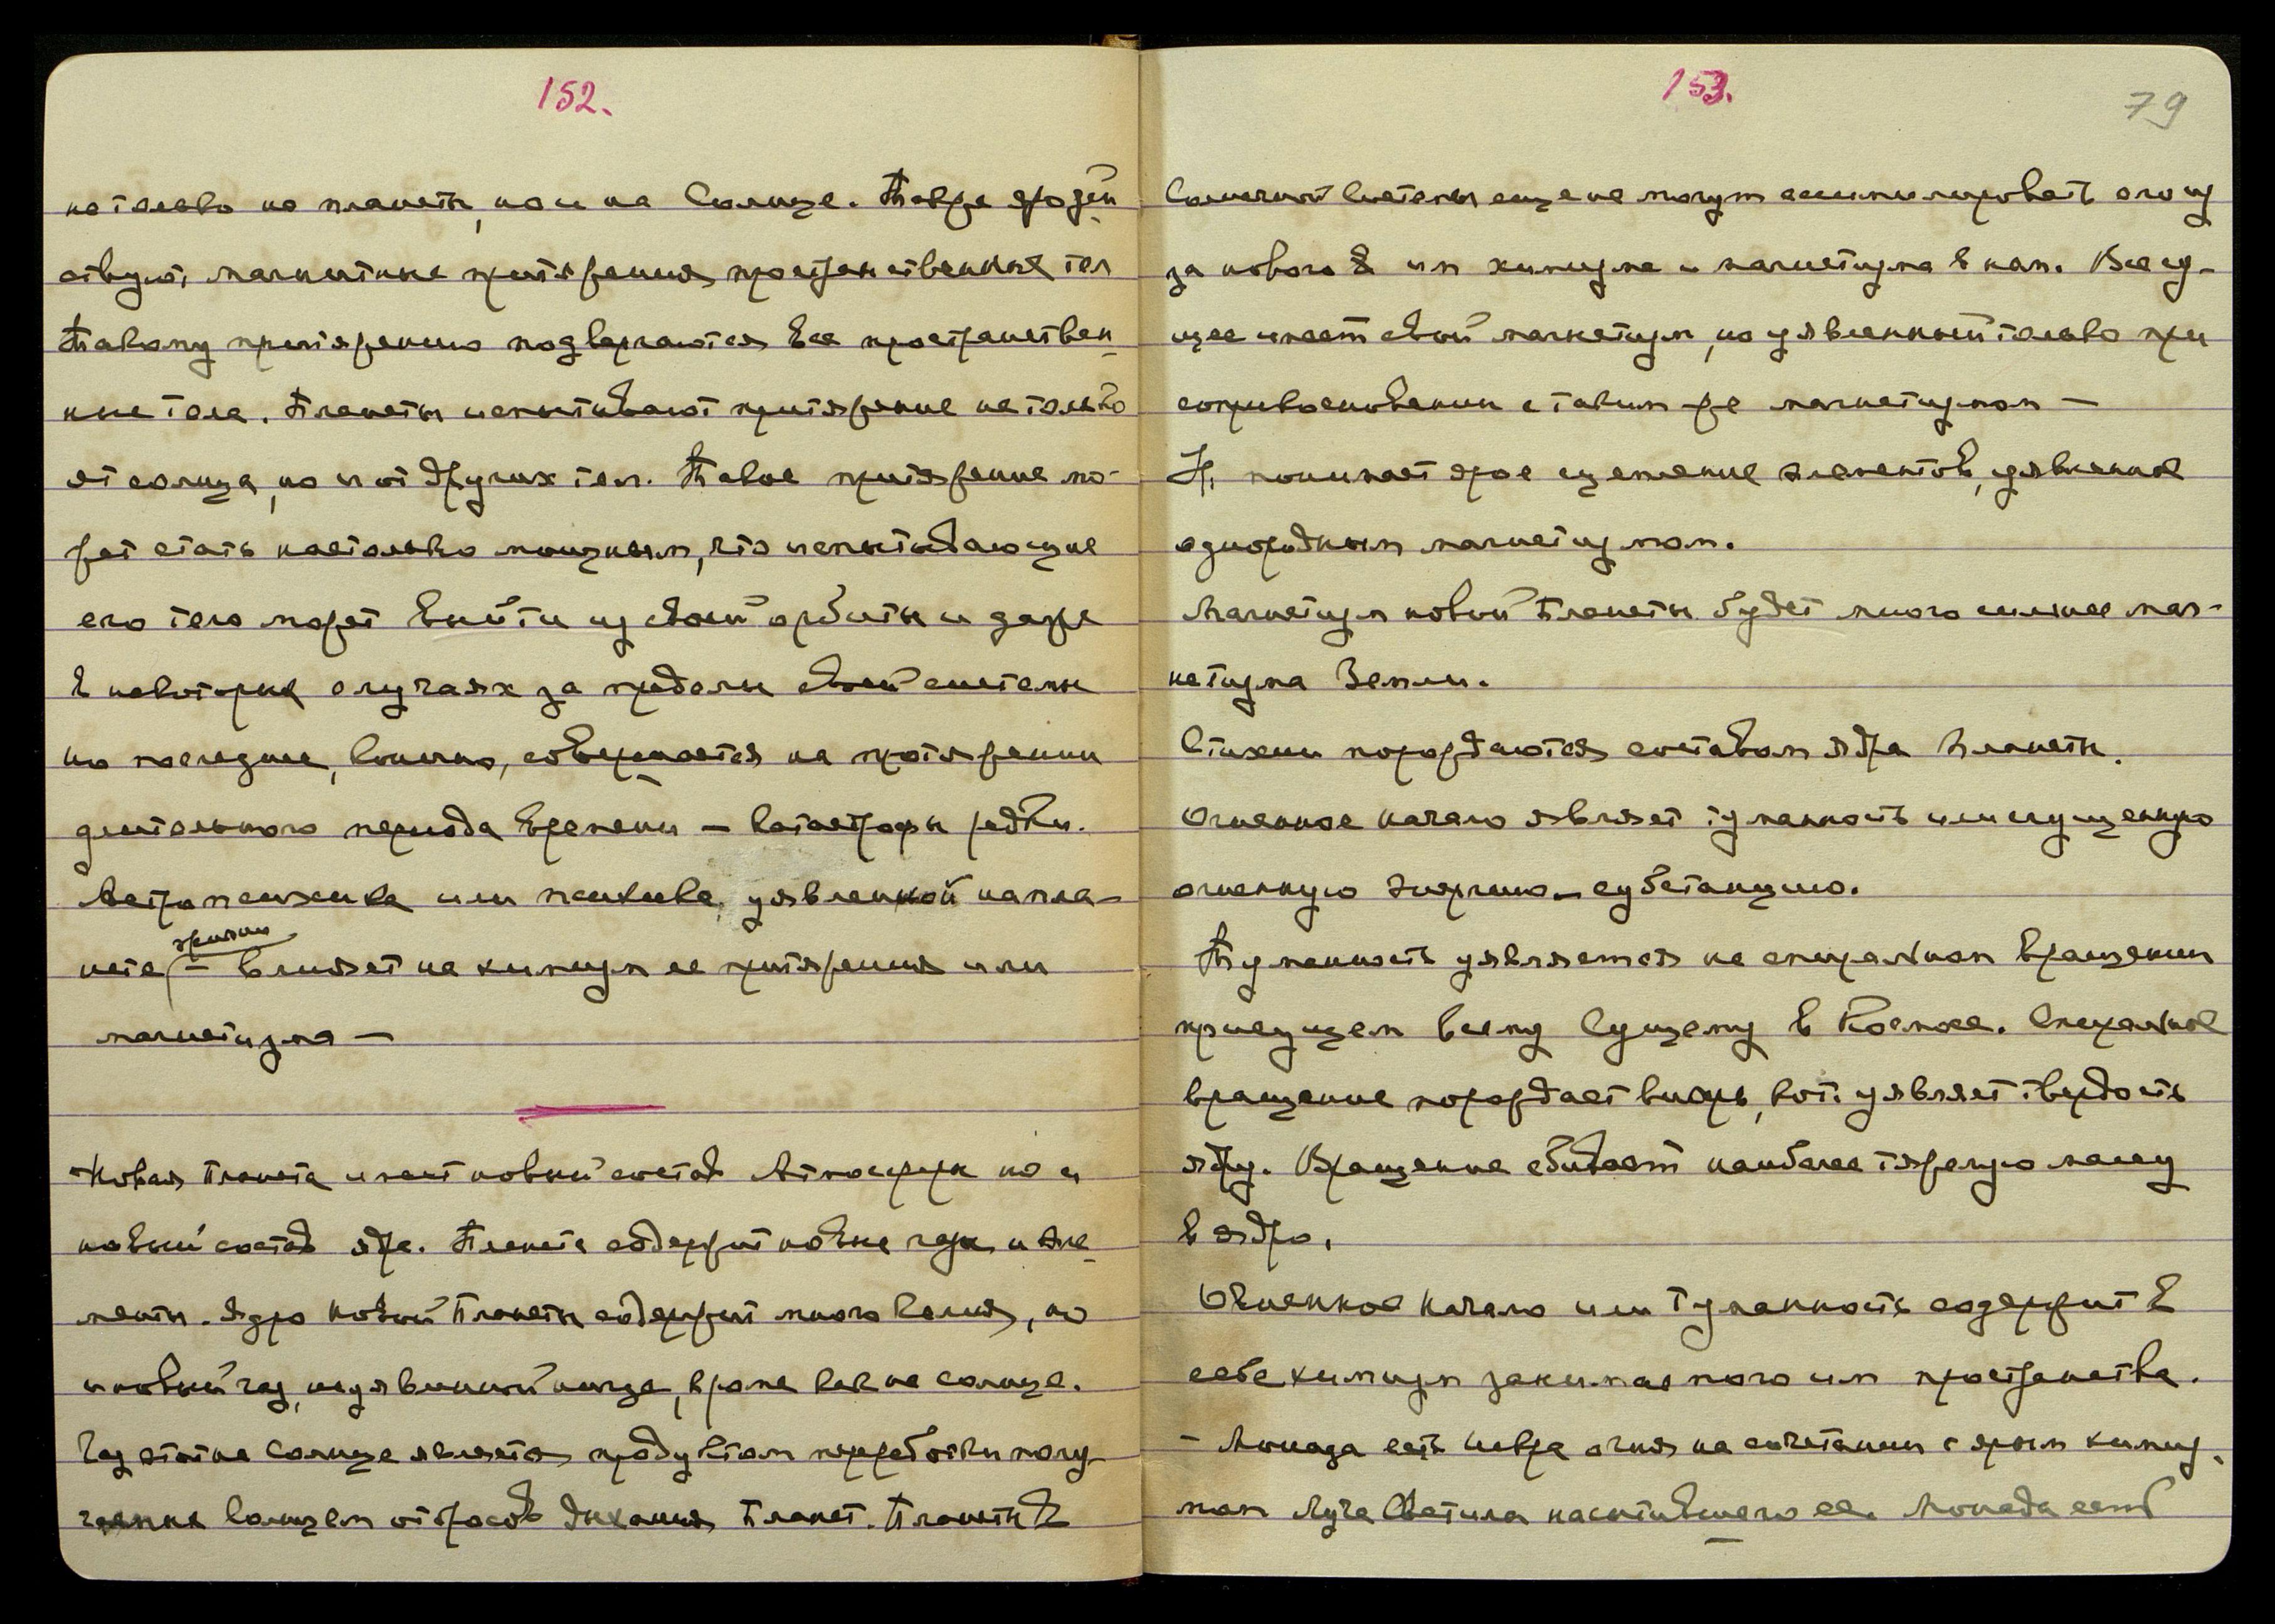 152.
не только на планеты, но и на Солнце. Также яро дей-
ствуют магнитные притяжения пространственных тел
Такому притяжению подвергаются все пространствен-
ные тела. Планеты испытывают притяжение не только
от солнца, но и от других тел. Такое притяжение мо-
жет стать настолько мощным, что испытывающее
его тело может выйти из своей орбиты и даже
в некоторых случаях за пределы своей системы
но последнее, конечно, совершается на протяжении
длительного периода времени — катастрофы редки.
Астрохимика или психика, уявленной на пла-
нете
— влияет на химизм ее притяжения или
магнетизма —
Новая планета имеет новый состав Атмосферы но и
новый состав ядра. Планета содержит новые газы и эле-
менты. Ядро новой Планеты содержит много Калия, но
и новый газ, не уявленный нигде, кроме как на солнце.
Газ этот на Солнце является продуктом переработки полу-
ченных Солнцем отбросов дыхания Планет. Планеты в
153.
79
Солнечной Системы еще не могут ассимилировать этого
за нового в им химизма и магнетизма в нам. Все су-
щее имеет свой магнетизм, но уявленный только при
соприкосновении с таким же магнетизмом —
Н. понимает ярое сцепление элементов, уявленное
однородным магнетизмом.
Магнетизм новой Планеты будет много сильнее маг-
нетизма Земли.
Стихии порождаются составом ядра планеты.
Огненное начало являет туманность или сгущенную
огненную энергию — субстанцию.
Туманность уявляется на спиральном вращении
присущем всему Сущему в Космосе. Спиральное
вращение порождает вихрь, кот. уявляет твердость
ядру. Вращение сбивает наиболее тяжелую массу
в ядро.
Огненное начало или Туманность содержит в
себе химизм занимаемого им пространства.
— Монада есть Искра огня на сочетании с ярым химиз-
мом Луча Светила насытившего ее. Монада есть